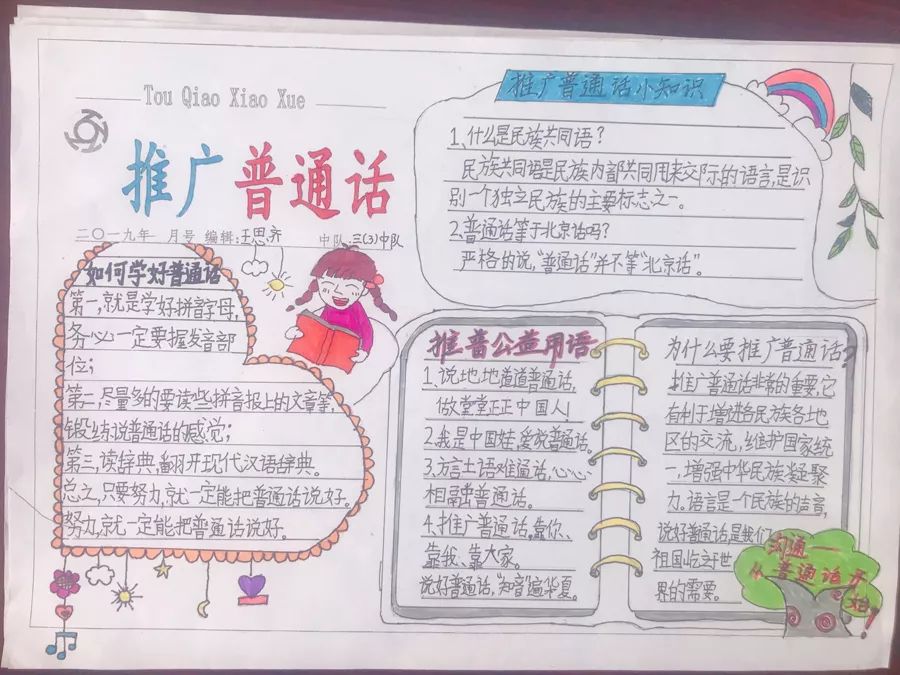 Tou Qiao Xiao Xue
推广普通话
二〇一九年 月号 编辑:王思齐 中队:三(3)中队
如何学好普通话
第一,就是学好拼音字母,
务必一定要握发音部
位;
第二,尽量多的要读些拼音报上的文章等,
锻练说普通话的感觉;
第三,读辞典,翻开现代汉语辞典。
总之,只要努力,就一定能把普通话说好。
努力,就一定能把普通话说好。
推广普通话小知识
1、什么是民族共同语?
民族共同语是民族内部共同用来交际的语言,是识
别一个独立民族的主要标志之一。
2、普通话等于北京话吗?
严格的说,“普通话”并不等“北京话”。
推普公益用语
1、说地地道道普通话,
做堂堂正正中国人!
2、我是中国娃,爱说普通话。
3、方言土语难通话,心心
相融普通话。
4、推广普通话,靠你、
靠我、靠大家。
说好普通话,“知音”遍华夏。
为什么要推广普通话?
推广普通话非常的重要,它
有利于增进各民族各地
区的交流,维护国家统
一,增强中华民族凝聚
力。语言是个民族的声音,
说好普通话是我们
祖国屹立于世
界的需要。
沟通——
从普通话开
始!